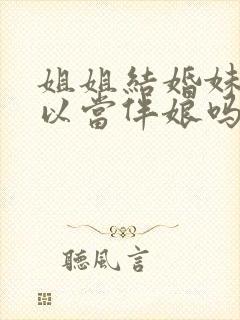 姐姐結婚妹
以當伴娘吗
聽風言